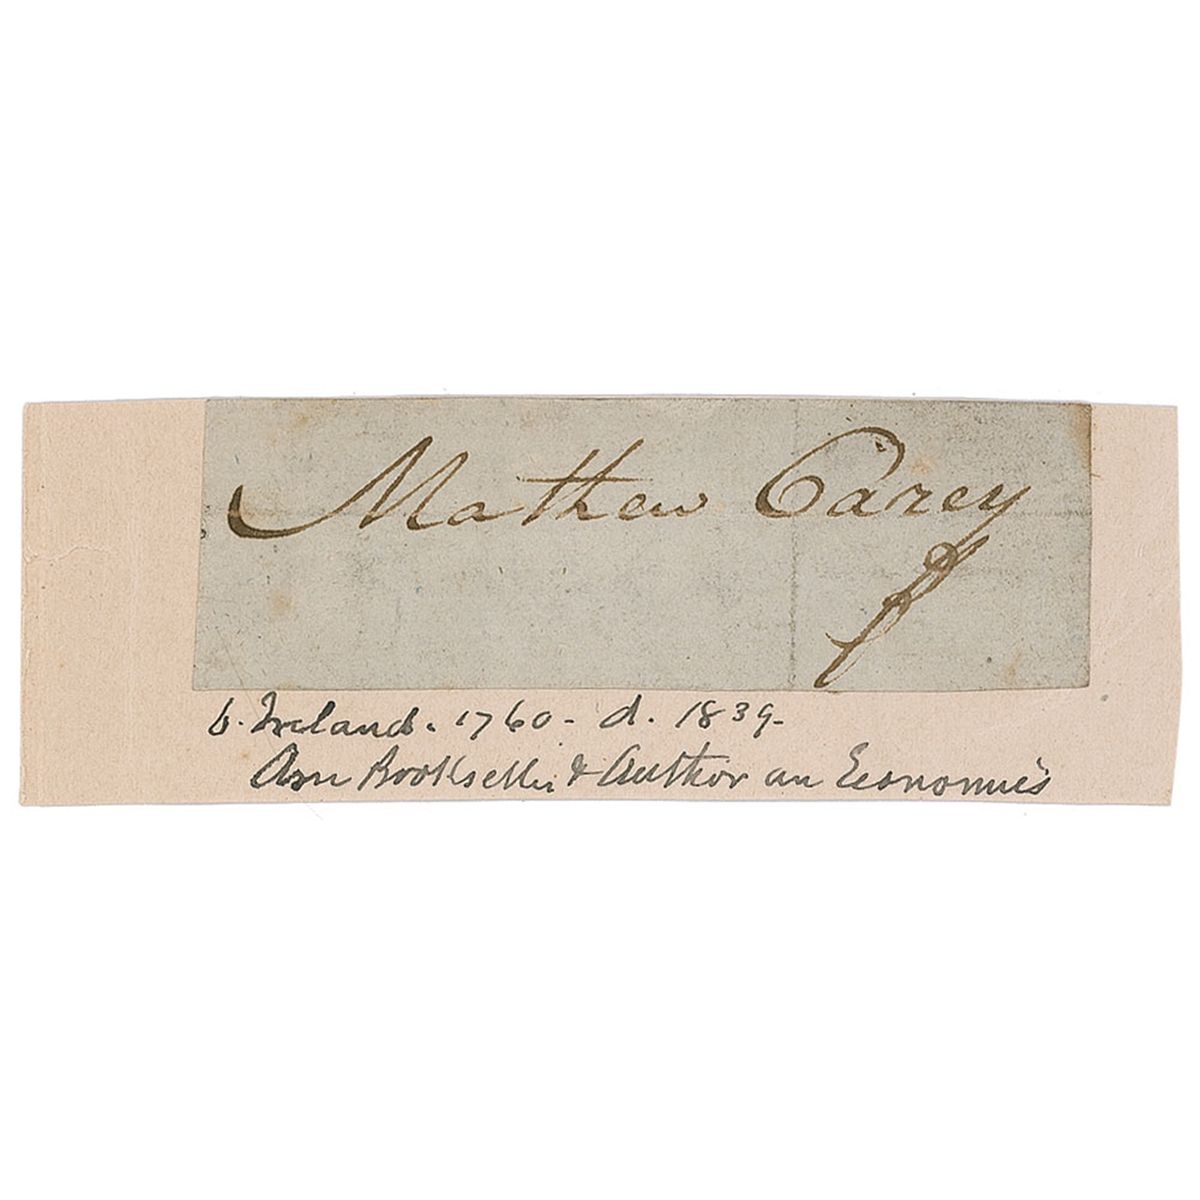 Mathew Carey
b. Ireland. 1760 - d. 1839 -
Am Bookseller & Author on Economics